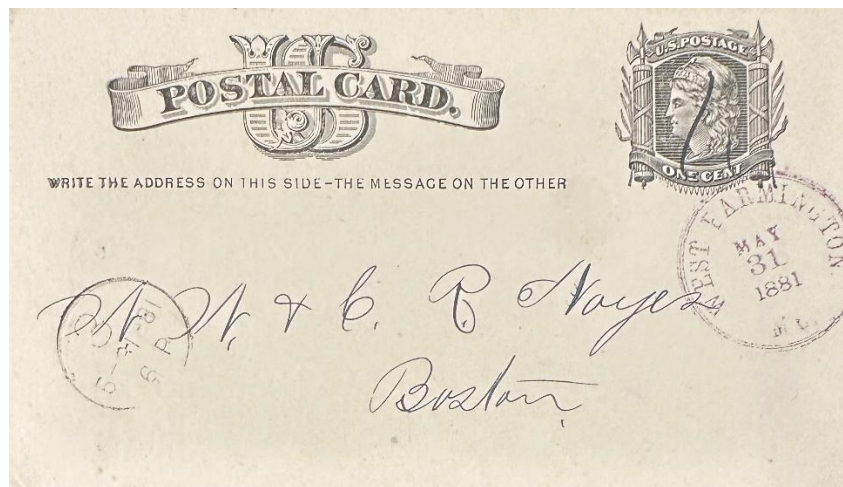 US
POSTAL CARD.
U.S. POSTAGE
ONE CENT
WRITE THE ADDRESS ON THIS SIDE-THE MESSAGE ON THE OTHER
WEST FARMINGTON
MAY
31
1881
& C. P. Noyes
Boston